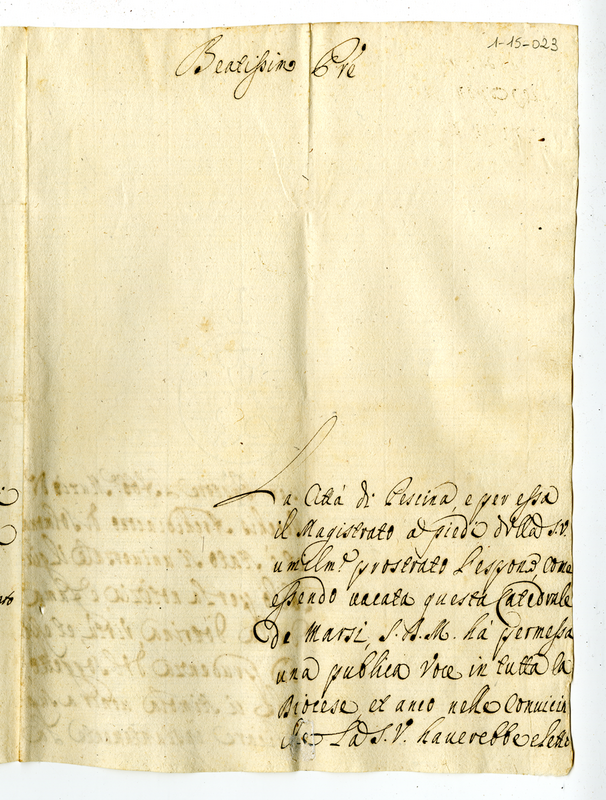 1-15-023
Beatissimo Pre
La Città di Pescina, e per essa
il Magistrato a piedi della S.V.
umilmte prostrato l'espone, come
essendo vacata questa Catedrale
de Marsi, S.D.M. há permessa
una publica voce in tutta la
Diocese et anco nelle convicin
La S.V. haverebbe eletto